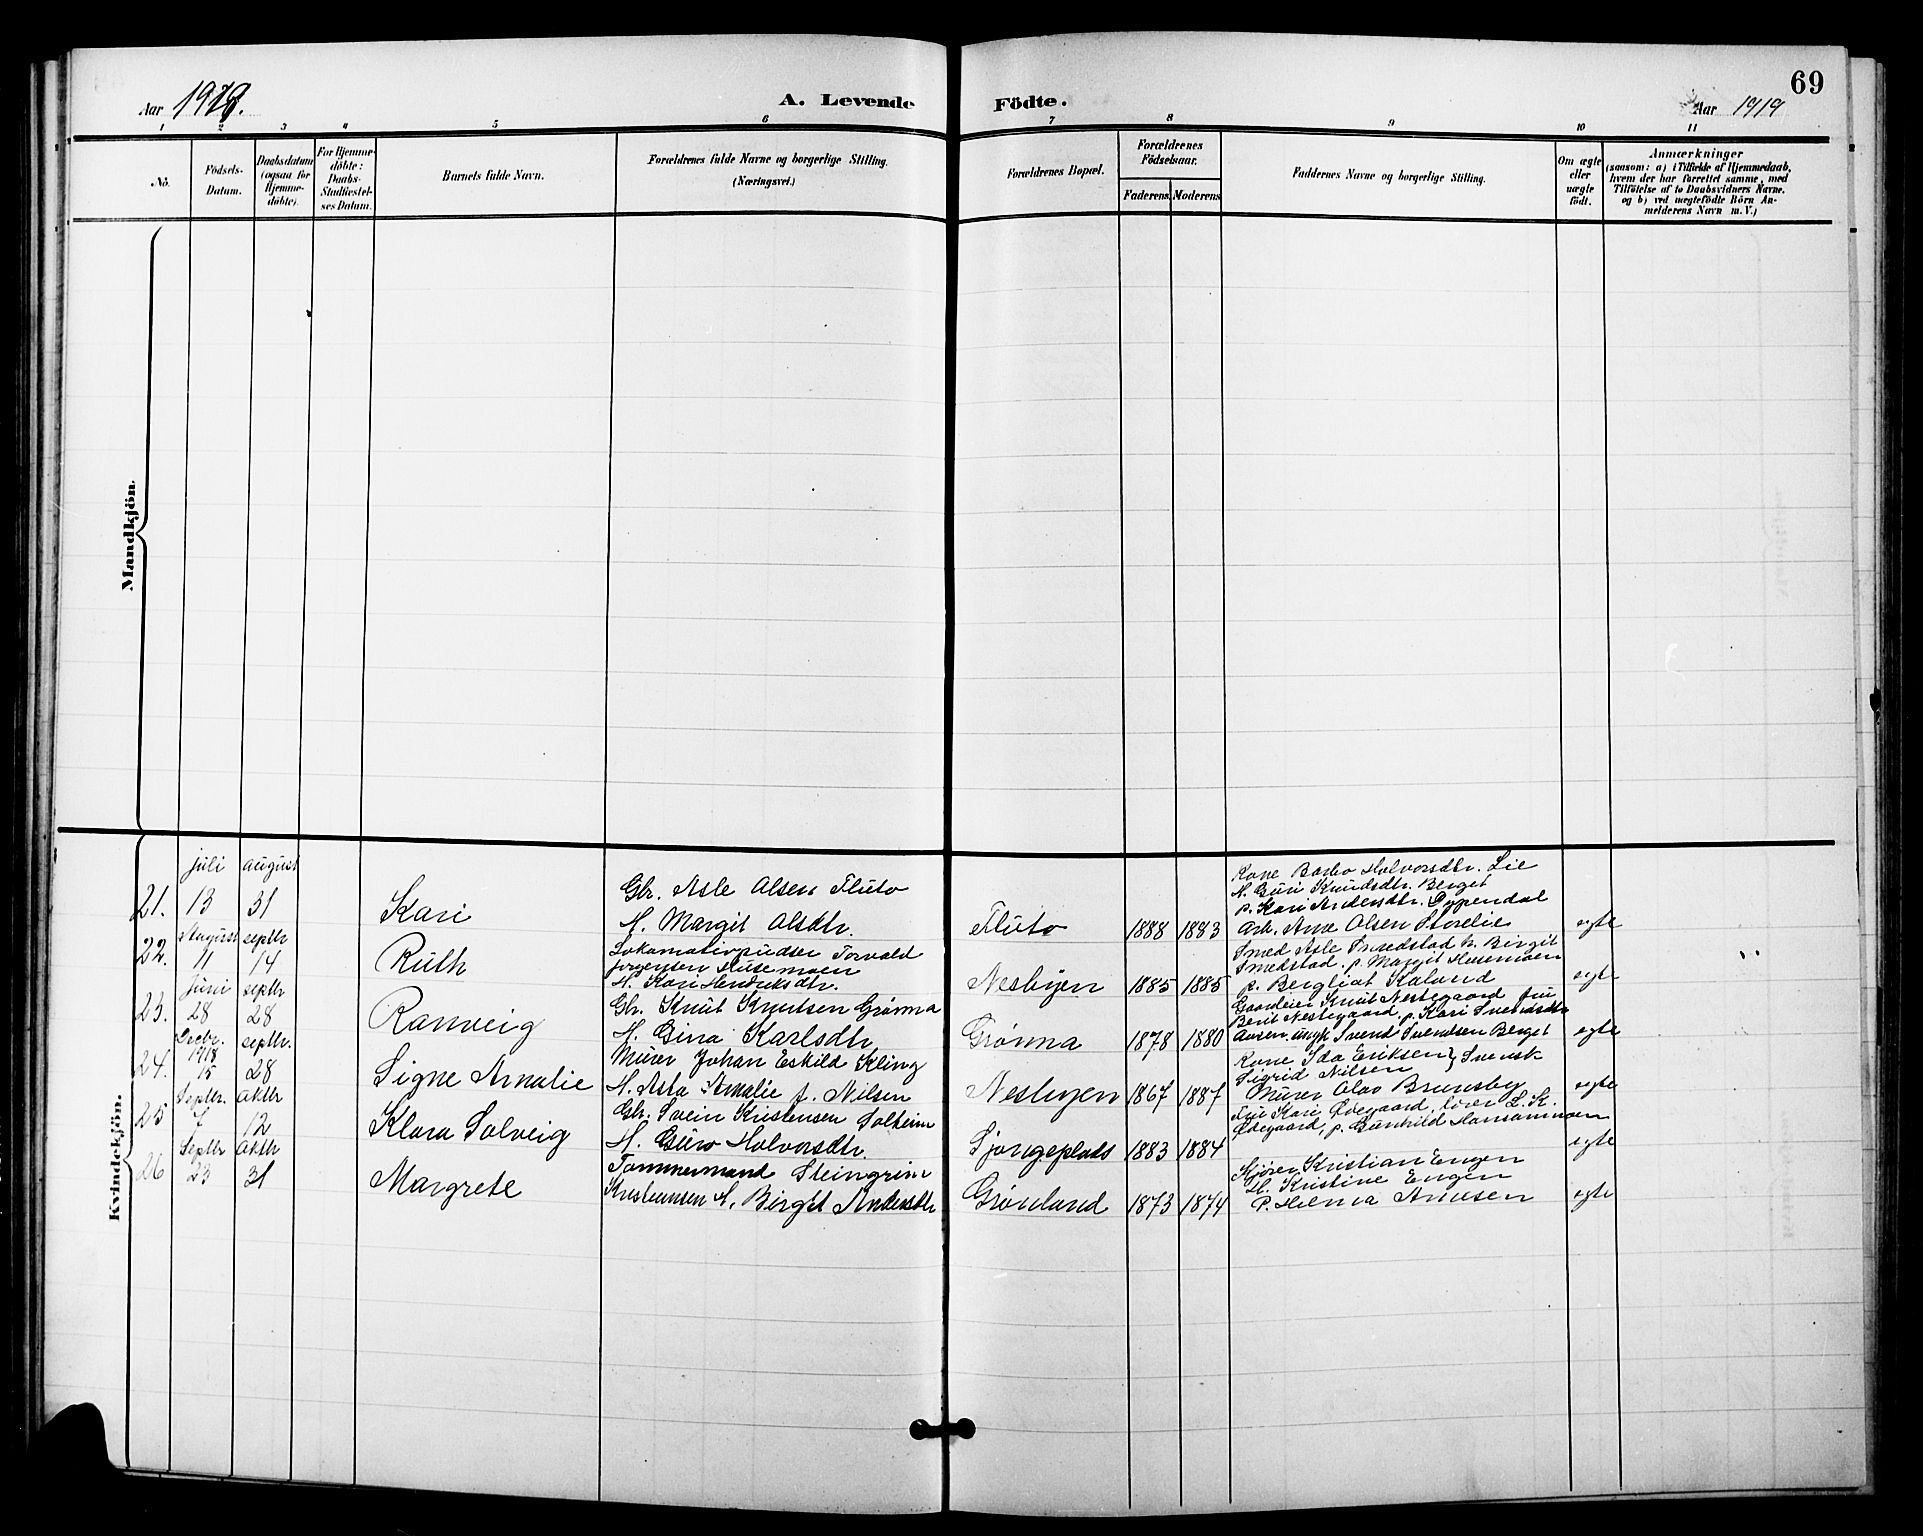 69
Aar 1919.
A. Levende Födte.
Aar 1919
1 2 3 4 5 6 7 8 9 10 11
Nô.
Födsels-
Datum.
Daabsdatum
(ogsaa for
Hjemme-
döbte).
For Hjemme-
döbte:
Daabs-
Stadfæstel-
ses Datum.
Barnets fulde Navn.
Forældrenes fulde Navne og borgerlige Stilling.
(Næringsvei.)
Forældrenes Bopæl.
Forældrenes
Födselsaar.
Faderens. Moderens
Faddernes Navne og borgerlige Stilling.
Om ægte
eller
uægte
födt.
Anmærkninger
(saasom: a) i Tilfælde af Hjemmedaab,
hvem der har forrettet samme, med
Tilföielse af to Daabsvidners Navne.
og b) ved uægtefödte Börn An-
melderens Navn m. V.)
Mandkjön.
Kvindekjön.
21.
juli
13
august
31
Kari
Gbr. Asle Olsen Fluto
H. Margit Olsdtr.
Fluto
1888 1883
Kone Barbo Halvorsdtr. Lie
H. Guri Knudsdtr. Berget
p. Kari Andersdtr. Dypendal
Arb. Arne Olsen Storelie
egte
22.
August
11
septbr
14
Ruth
Lokomotivpudser Torvald
Jørgensen Husemoen
H. Kari Henriksdtr.
Nesbyen
1885 1885
Smed Asle Smedstad h. Birgit
Smedstad. p. Margit Husemoen
p. Bergliot Kaland
egte
23.
Juni
28
septbr
28
Ranveig
Gbr. Knut Knutsen Grønna
H. Gina Karlsdtr
Grønna
1878 1880
Gaardeier Knut Nestegaard fru
Berit Nestegaard, p. Kari Svendsdtr
ungk Svend Svendsen Berget
egte
24.
Decbr.
1918
15
septbr.
28
Signe Amalie
Murer Johan Eskild Kling
H. Asta Amalie f. Nilsen
Nesbyen
1867 1887
Kone Ida Eriksen } Svensk
Sigrid Nilsen
Murer Olav Brunsby
egte
25
Septbr.
7
Oktbr
12
Klara Solveig
Gbr. Svein Kristensen Solheim
H. Guro Halvorsdtr.
1883 1884
Frue Kari Ødegaard, lærer L. K.
Ødegaard, p. Gunhild Hansammoen
egte
26
Septbr
23
Oktbr
31
Margrete
Tømmermand Steingrim
Kristiansen H. Birgit Andersdtr
Grønland
1873 1874
Skjører Kristian Engen
H. Kristine Engen
P. Helma Arnesen
egte